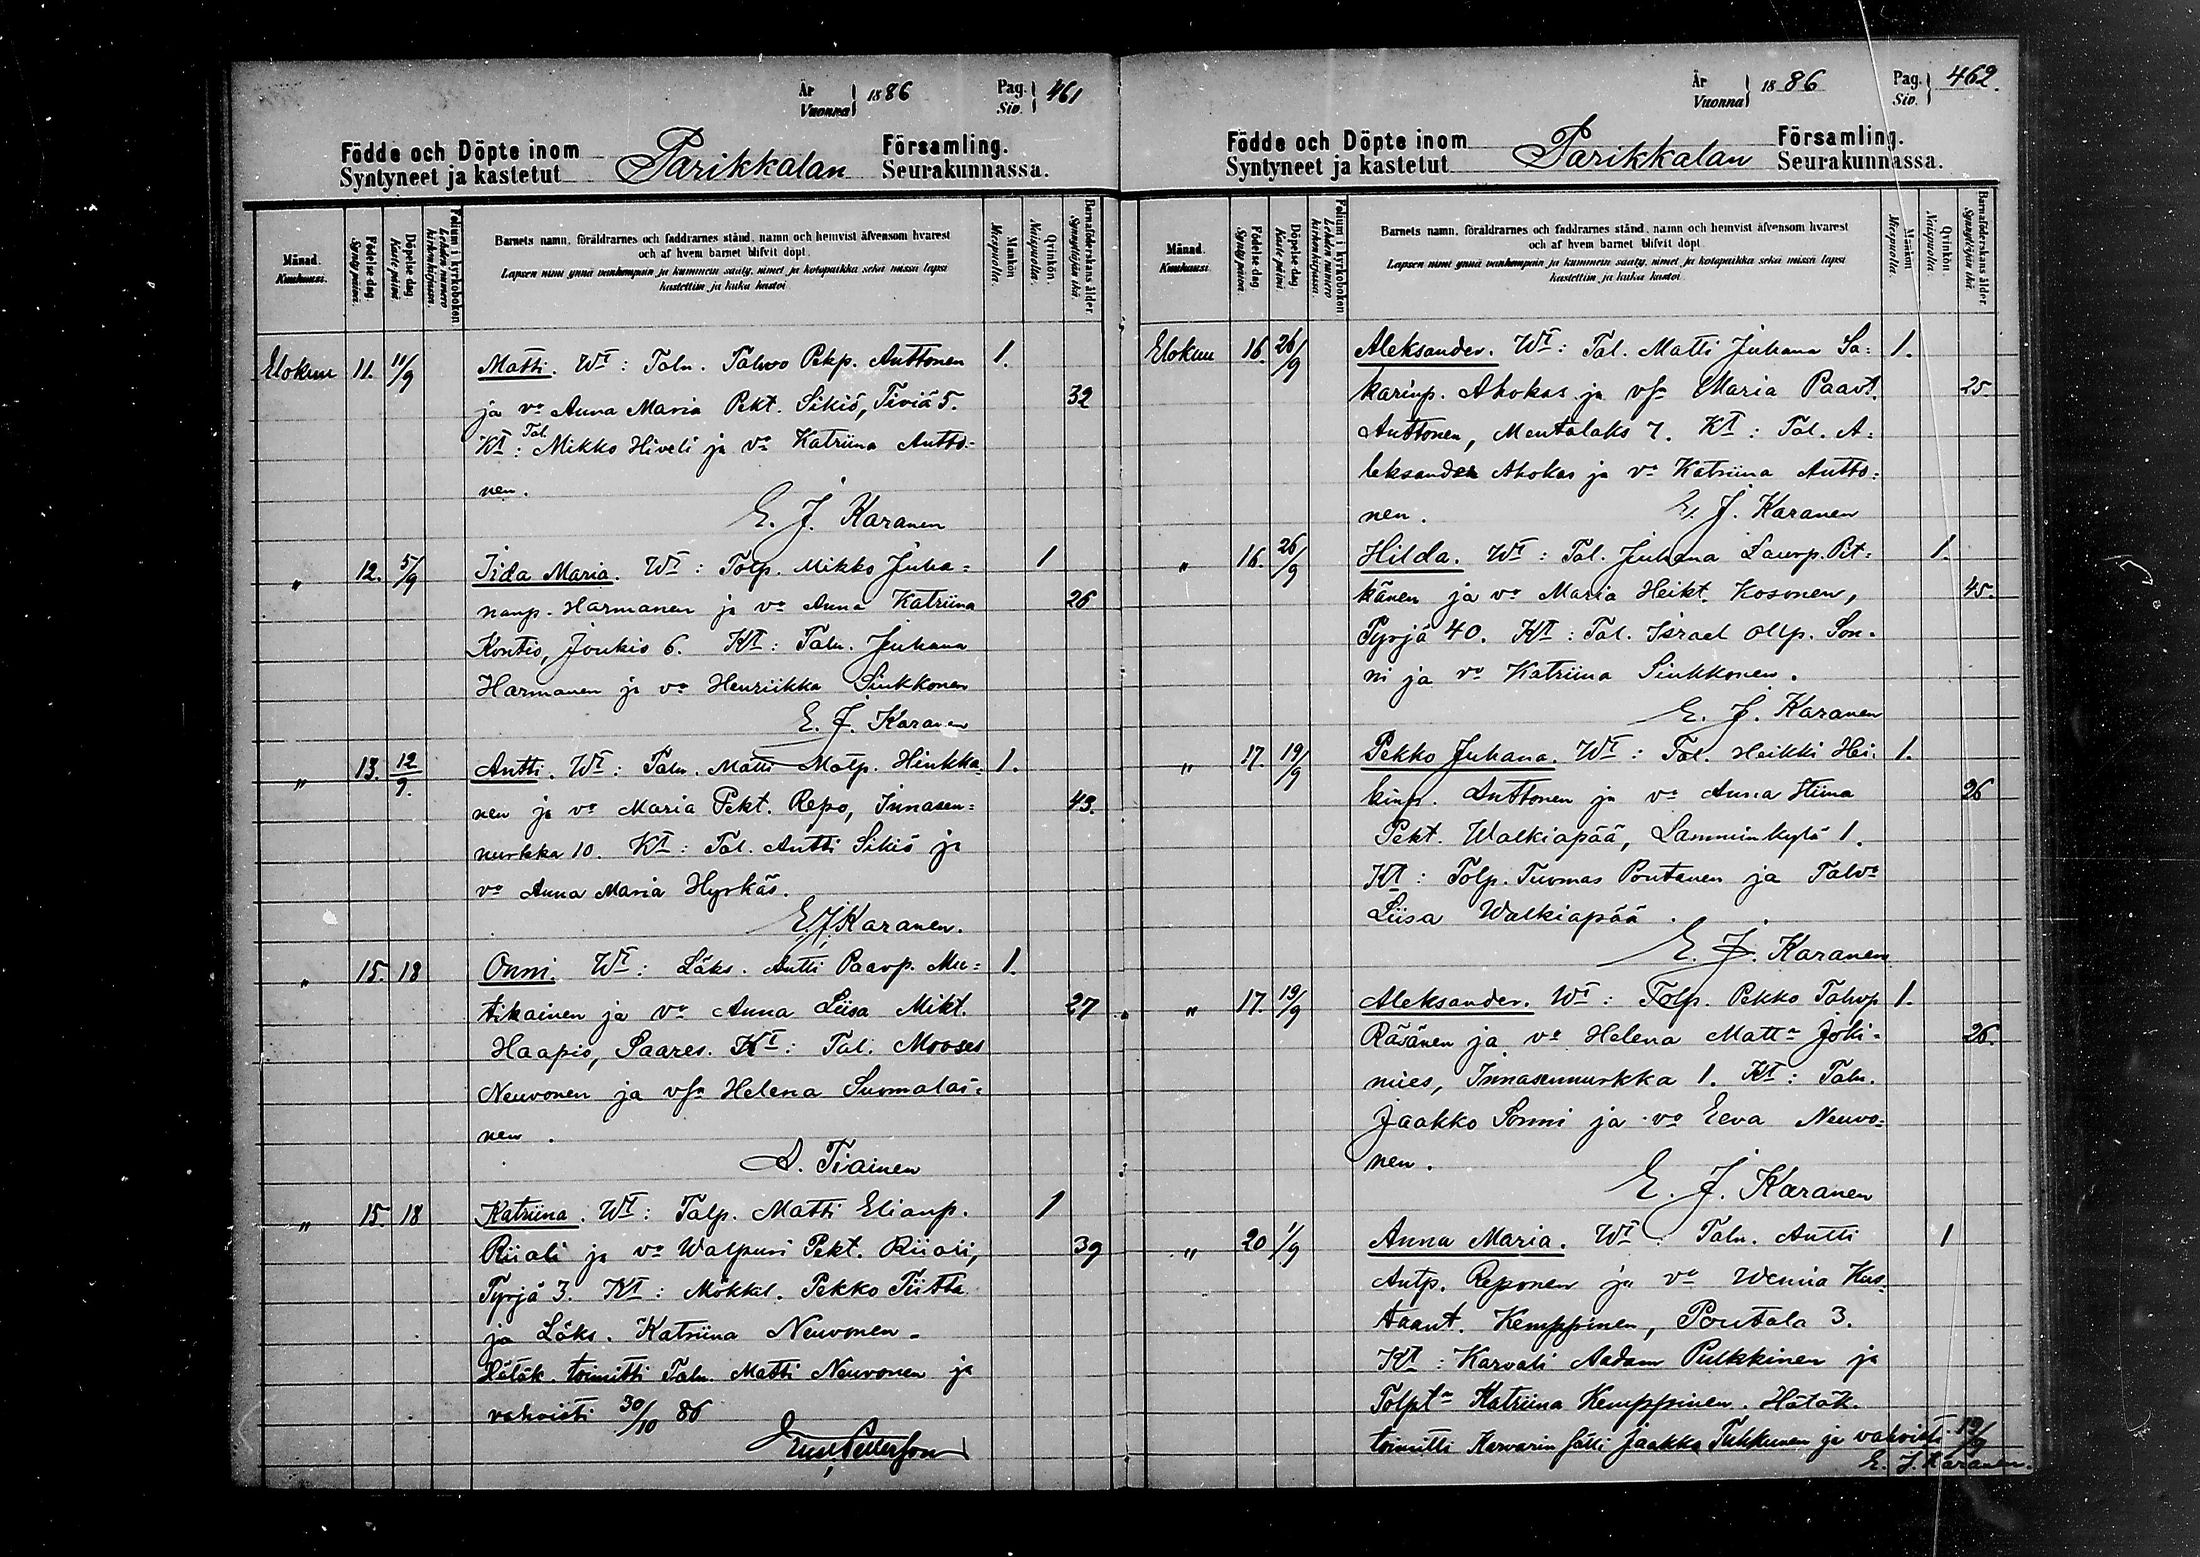 År
Vuonna } 1886 Pag.
Siv. } 461
Födde och Döpte inom Parikkalan Församling.
Syntyneet ja kastetut Seurakunnassa.
Månad.
Kuukausi.
Födelse-dag
Synty päivä.
Döpelse-dag
Kaste-päivä.
Folium i kyrkoboken
Lehden numero
kirkonkirjassa.
Barnets namn, föräldrarnes och faddrarnes stånd, namn och hemvist äfvensom hvarest
och af hvem barnet blifvit döpt.
Lapsen nimi ynnä vanhempain ja kummein sääty, nimet ja kotopaikka sekä missä lapsi
kastettiin ja kuka kastoi
Mankön
Miespuolia.
Qvinkön.
Naispuolia.
Barnaföderskans ålder.
Synnyttäjän ikä.
Elokuu 11. 11/9 Matti. Wt: Taln. Tahvo Pekp. Anttonen 1.
ja vo Anna Maria Pekt. Sikiö, Tiviä 5. 32
Kt: Tal. Mikko Hiveli ja vo Katriina Antto=
nen.
E. J. Karanen
" 12. 5/9 Iida Maria. Wt: Tolp. Mikko Juha= 1
nanp. Harmanen ja vo Anna Katriina 26
Kontio, Joukio 6. Kt: Taln. Juhana
Harmanen ja vo Henriikka Sinkkonen
E. J. Karanen
" 13. 12/9. Antti. Wt: Taln. Matti Matp. Hinkka= 1.
nen ja vo Maria Pekt. Repo, Innasen= 43.
nurkka 10. Kt: Tal. Antti Sikiö ja
vo Anna Maria Hyrkäs.
E. J. Karanen.
" 15. 18 Onni. Wt: Läks. Antti Paavp. Mu= 1.
tikainen ja vo Anna Liisa Mikt. 27
Haapio, Saares. Kt: Tal. Mooses
Neuvonen ja vsa Helena Suomalai=
nen.
A. Tiainen
" 15. 18 Katriina. Wt: Talp. Matti Elianp. 1
Riiali ja vo Walpuri Pekt. Riiali, 39
Tyrjä 3. Kt: Mökkl. Pekko Tiitta
ja Läks. Katriina Neuvonen.
Hätäk. toimitti Taln. Matti Neuvonen ja
vahvisti 30/10 86
År
Vuonna } 1886 Pag.
Siv. } 462.
Födde och Döpte inom Parikkalan Församling.
Syntyneet ja kastetut Seurakunnassa.
Månad.
Kuukausi.
Födelse-dag
Synty päivä.
Döpelse-dag
Kaste-päivä.
Folium i kyrkoboken
Lehden numero
kirkonkirjassa.
Barnets namn, föräldrarnes och faddrarnes stånd, namn och hemvist äfvensom hvarest
och af hvem barnet blifvit döpt.
Lapsen nimi ynnä vanhempain ja kummein sääty, nimet ja kotopaikka sekä missä lapsi
kastettiin ja kuka kastoi
Mankön
Miespuolia.
Qvinkön.
Naispuolia.
Barnaföderskans ålder.
Synnyttäjän ikä.
Elokuu 16. 26/9 Aleksander. Wt: Tal. Matti Juhana Sa= 1.
karinp. Ahokas ja vsa Maria Paavt. 25.
Anttonen, Mentalaks 7. Kt: Tal. A=
leksander Ahokas ja vo Katriina Antto=
nen.
E. J. Karanen
" 16. 26/9 Hilda. Wt: Tal. Juhana Laurp. Pit= 1.
känen ja vo Maria Heikt. Kosonen, 45.
Tyrjä 40. Kt: Tal. Israel Ollp. Son=
ni ja vo Katriina Sinkkonen.
E. J. Karanen
" 17. 19/9 Pekko Juhana. Wt: Tal. Heikki Hei= 1.
kinp. Anttonen ja vo Anna Stiina 26
Pekt. Walkiapää, Lamminkylä 1.
Kt: Tolp. Tuomas Pontanen ja Talvo
Liisa Walkiapää.
E. J. Karanen
" 17. 19/9 Aleksander. Wt: Tolp. Pekko Tahvp 1.
Räsänen ja vo Helena Matta Joki= 26.
mies, Innasennurkka 1. Kt: Taln.
Jaakko Sonni ja vo Eeva Neuvo=
nen.
E. J. Karanen
" 20 1/9 Anna Maria. Wt: Taln. Antti 1
Antp. Reponen ja vo Wenna Kus=
taant. Kemppinen, Poutala 3.
Kt: Karvari Aadam Pulkkinen ja
Tolpta Katriina Kemppinen. Hätäk.
toimitti Karvarin sälli Jaakko Tukkunen ja vahvisti 19/9
E. J. Karanen.